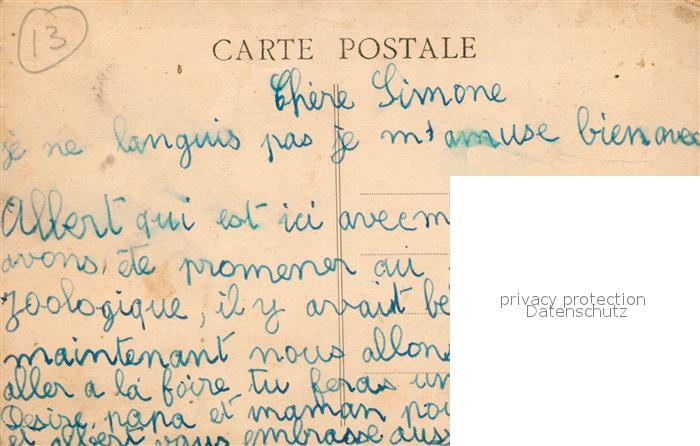 13
CARTE POSTALE
Chère Simone
je ne languis pas je m'amuse bien avec
Albert qui est ici avec m
avons éte promener au
zoologique, il y avait bé
maintenant nous allons
aller a la foire tu feras un
Desire, papa et maman pou
et albert vous embrasse auss
privacy protection
Datenschutz